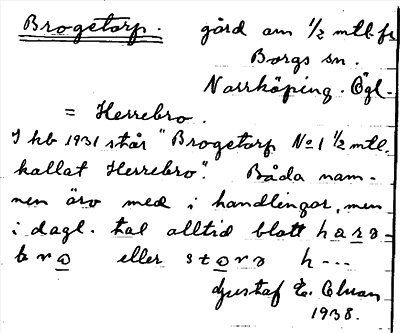 Brogetorp. gård om 1/2 mtl. fs
Borgs sn.
Norrköping. Ögl.
= Herrebro.
I kb 1931 står "Brogetorp No 1 1/2 mtl.
kallat Herrebro". Båda nam-
nen äro med i handlingar, men
i dagl. tal alltid blott hæra-
bro eller stora h---
Gustaf E.
1938.